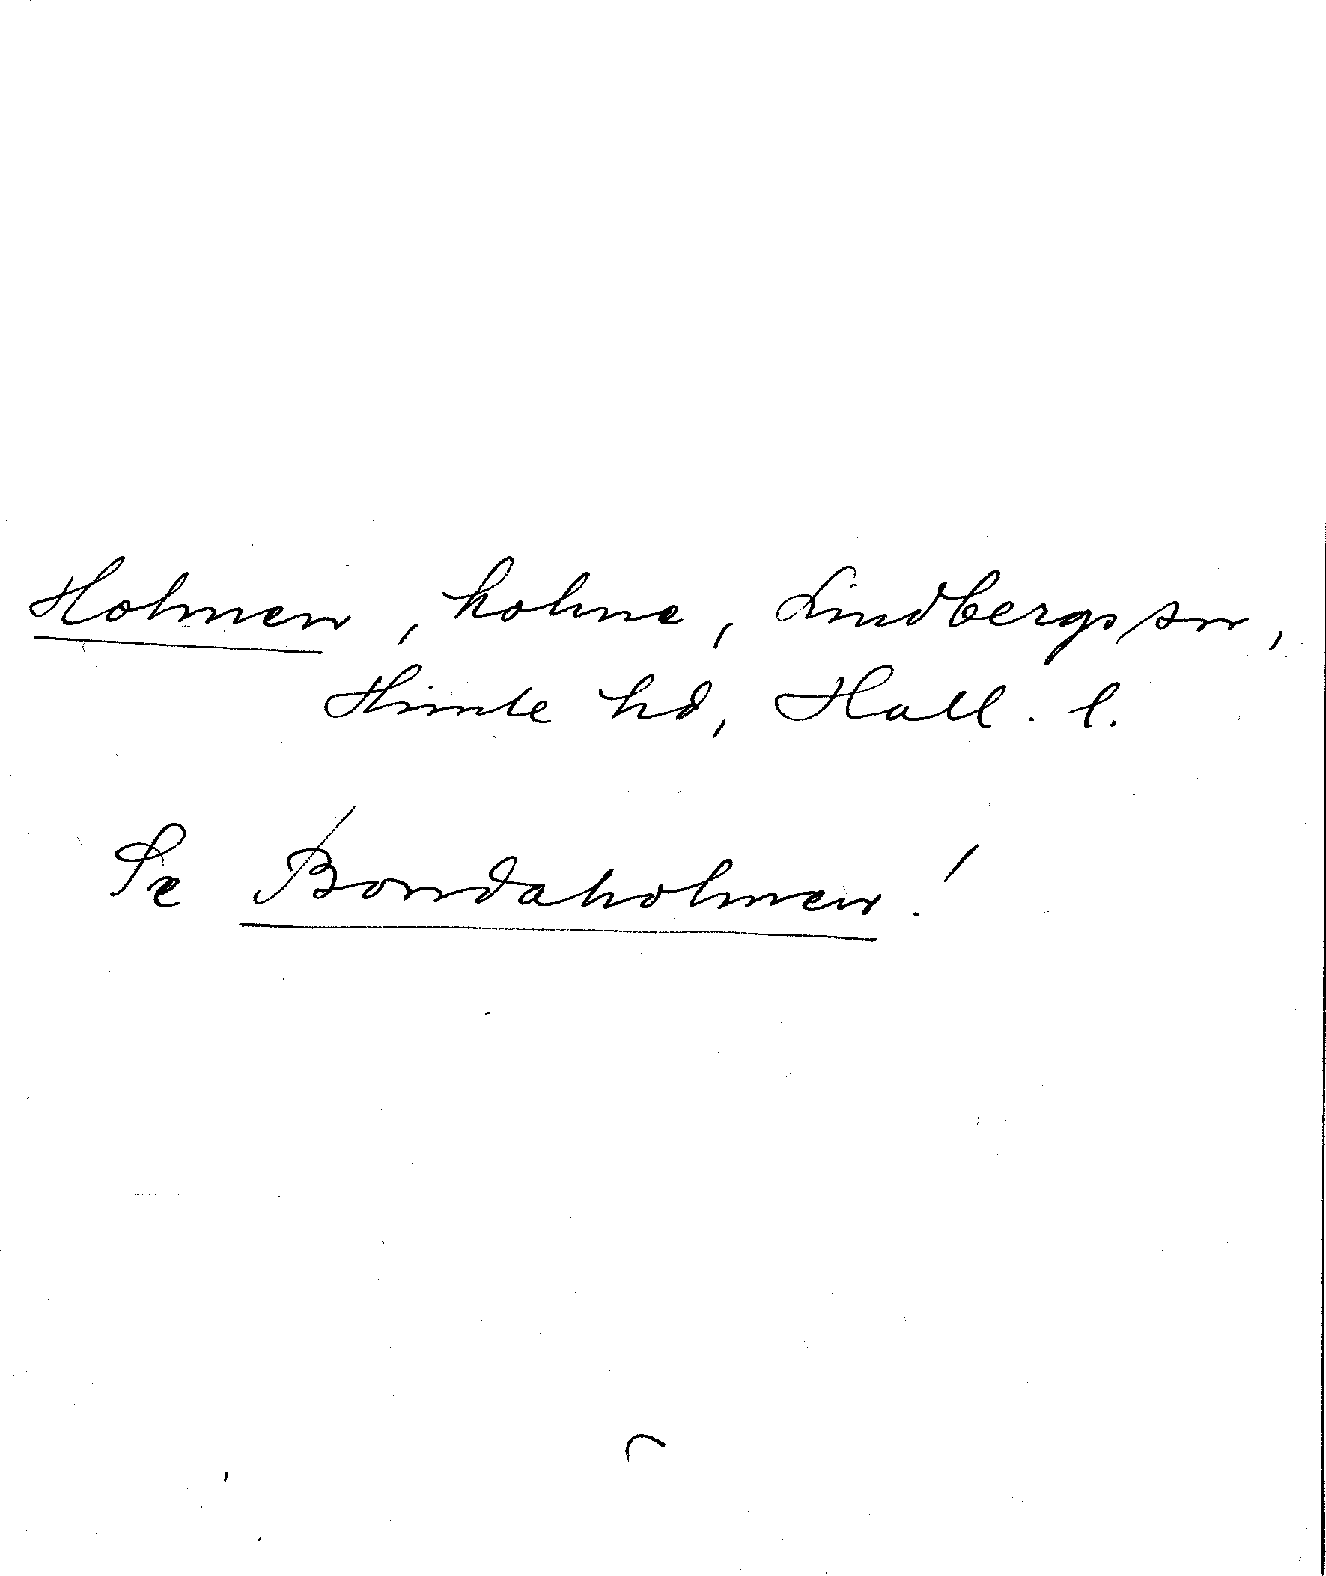 Holmen, holme, Lindbergs sn,
Himle hd, Hall. l.
Se Bondaholmen!